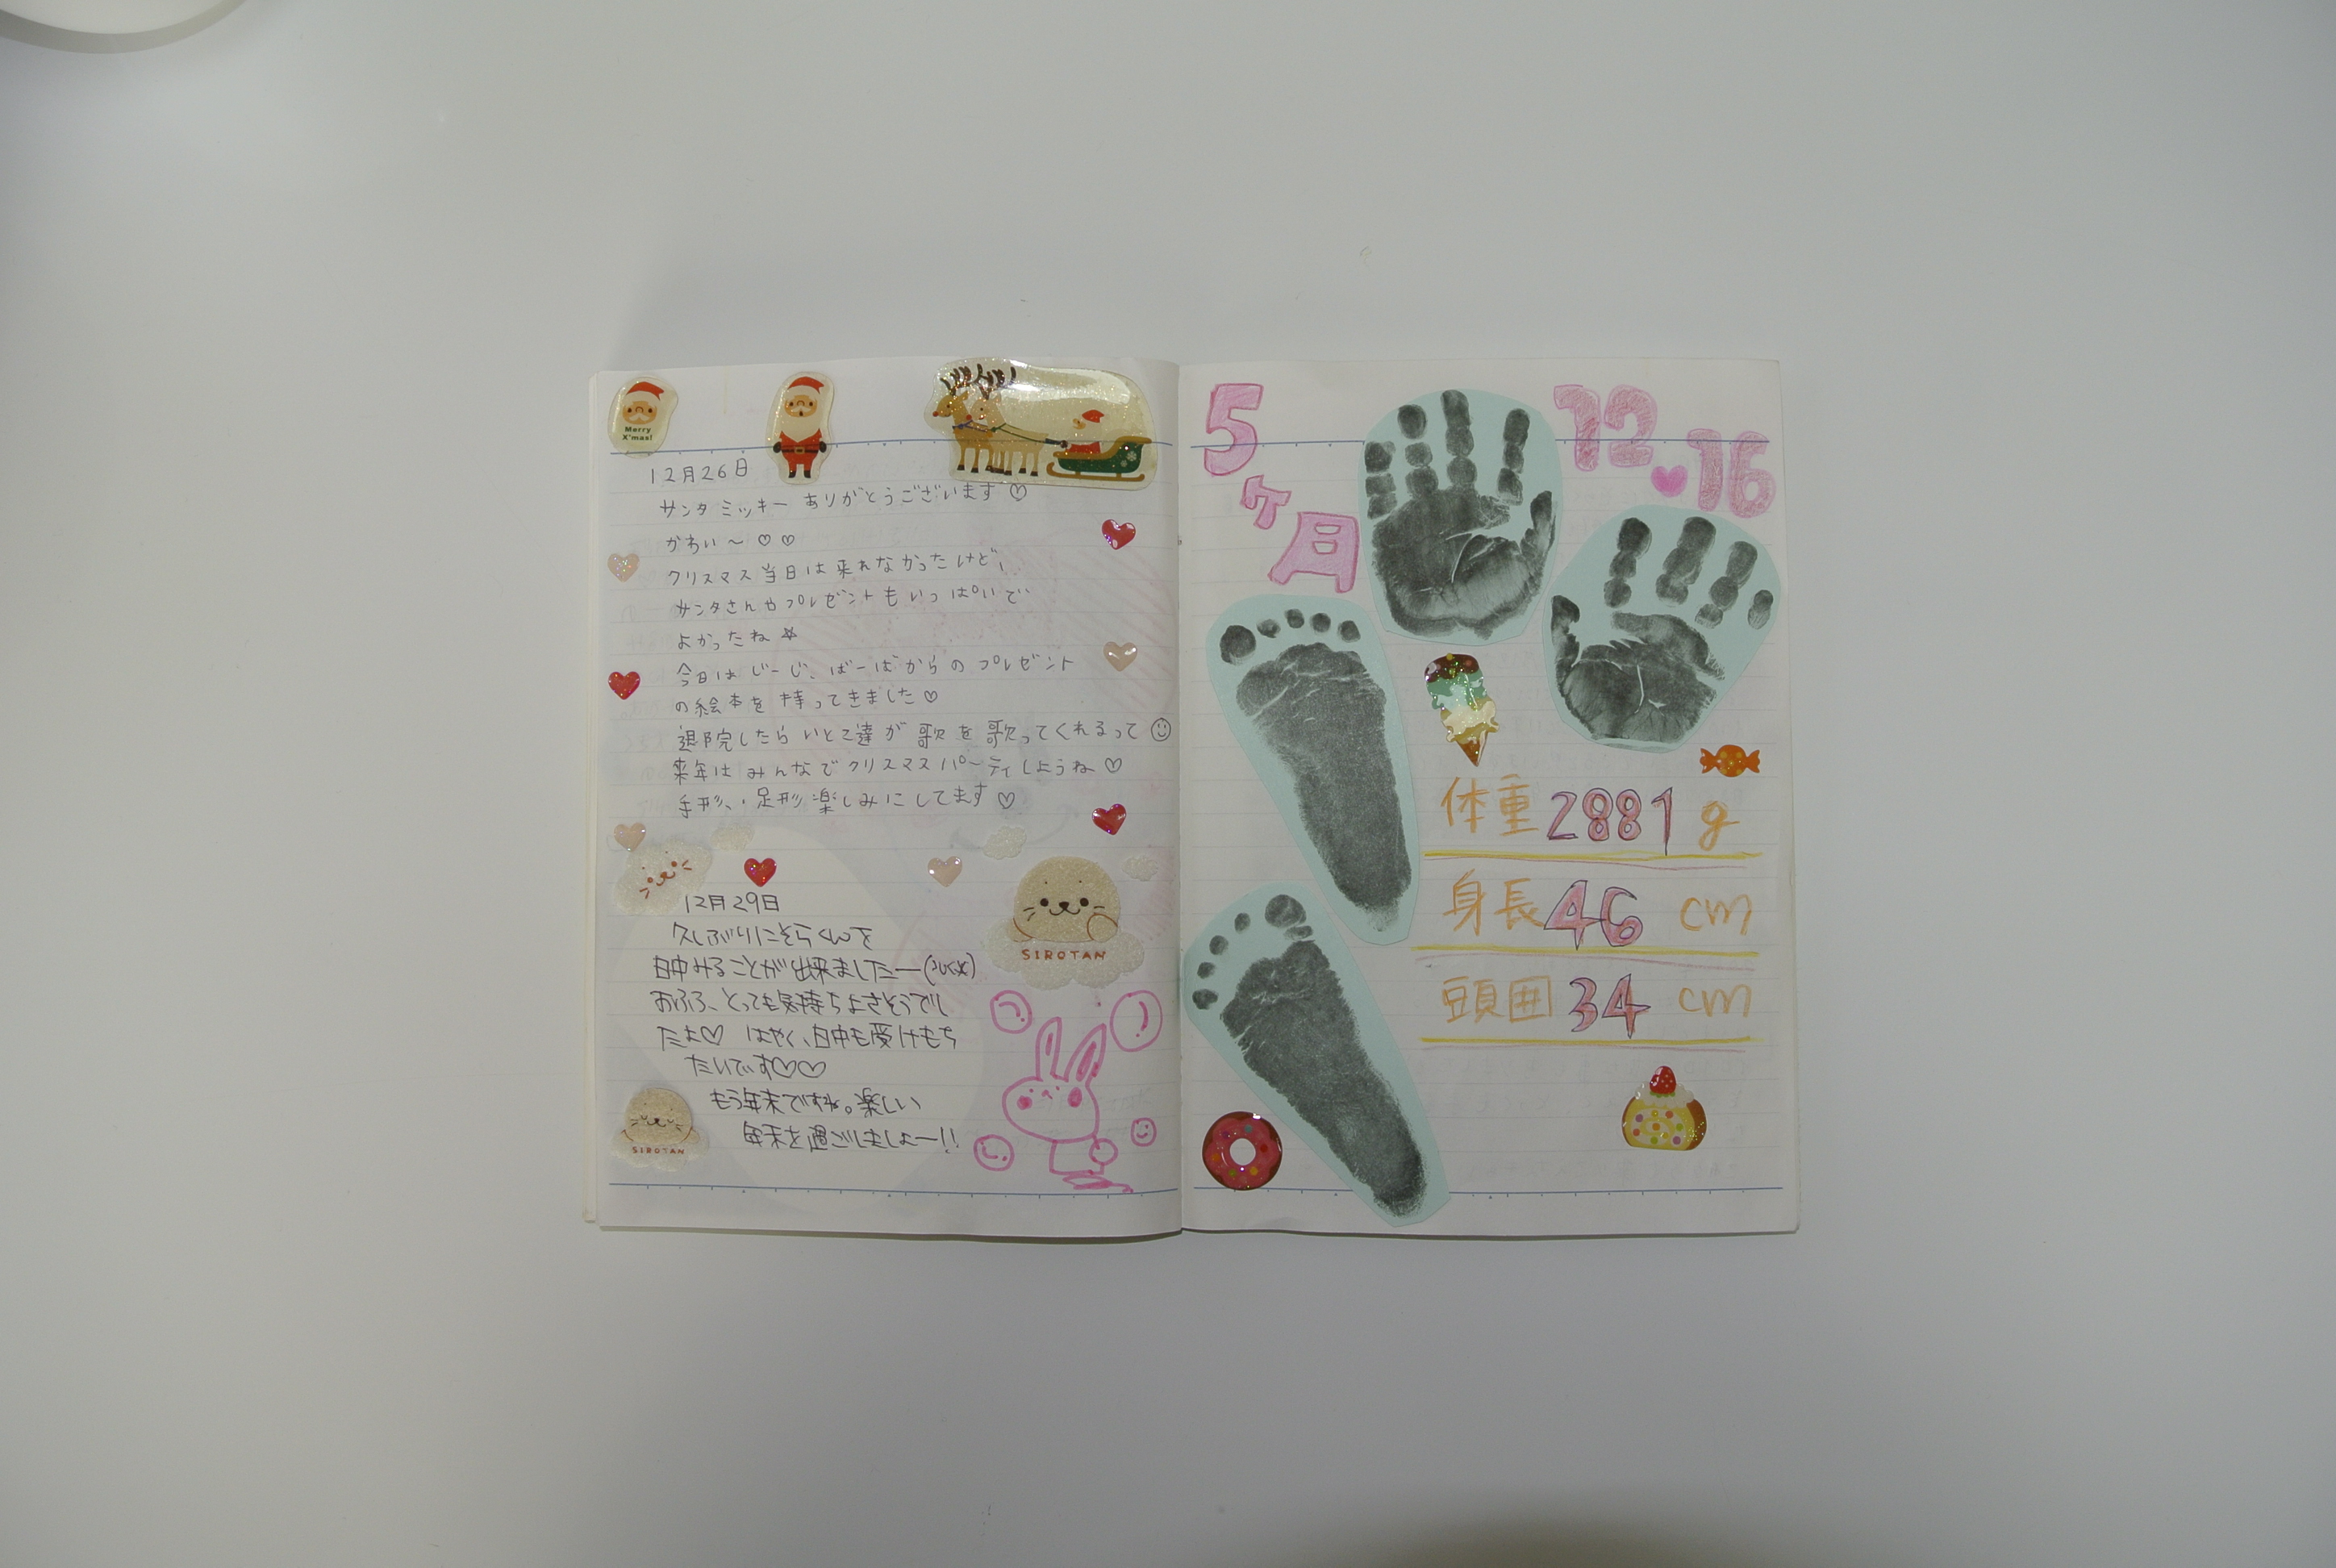 Merry
X'mas!
12月26日
サンタミッキー ありがとうございます♡
かわい〜♡♡
クリスマス当日は来れなかったけど、
サンタさんやプレゼントもいっぱいで
よかったね☆
今日はじーじ、ばーばからのプレゼント
の絵本を持ってきました♡
退院したらいとこ達が歌を歌ってくれるって☺
来年はみんなでクリスマスパーティしようね♡
手形、足形楽しみにしてます♡
12月29日
久しぶりにそらくんを
日中みることが出来ましたー
SIROTAN
おふろ、とっても気持ちよさそうでし
たよ♡ はやく、日中も受けもち
たいです♡♡
もう年末ですね。楽しい
年末を過ごしましょー!!
SIROTAN
5ヶ月
12♥16
体重2881g
身長46cm
頭囲34cm